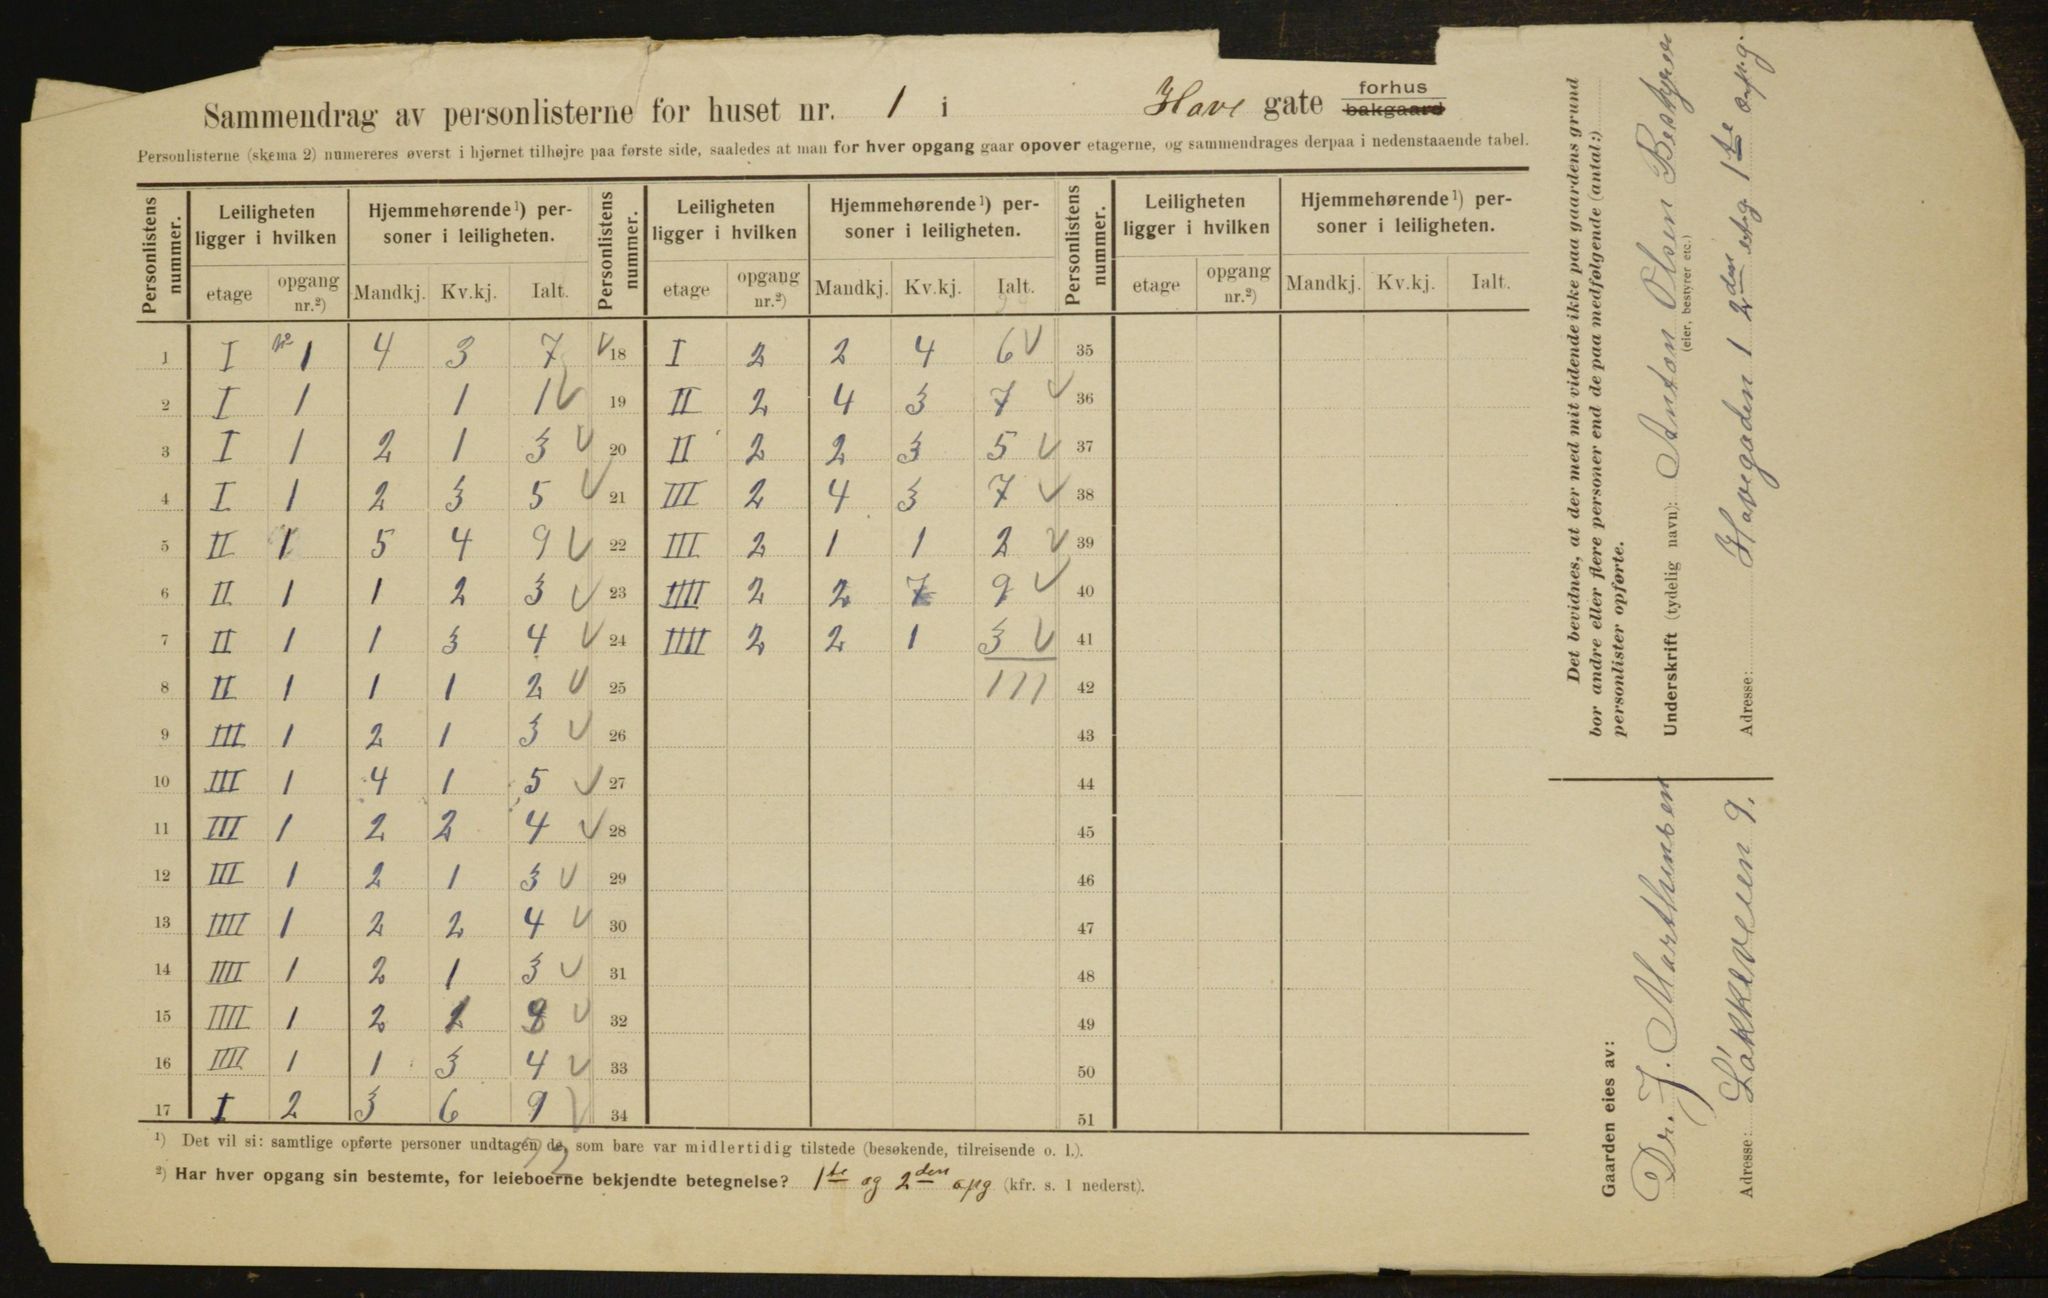 Sammendrag av personlisterne for huset nr. 1 i Have gate forhus bakgaard
Personlisterne (skema 2) numereres øverst i hjørnet tilhøjre paa første side, saaledes at man for hver opgang gaar opover etagerne, og sammendrages derpaa i nedenstaaende tabel.
Personlistens nummer. Leiligheten ligger i hvilken Hjemmehørende¹) personer i leiligheten. Personlistens nummer. Leiligheten ligger i hvilken Hjemmehørende¹) personer i leiligheten. Personlistens nummer. Leiligheten ligger i hvilken Hjemmehørende¹) personer i leiligheten.
etage opgang nr.²) Mandkj. Kv.kj. Ialt. etage opgang nr.²) Mandkj. Kv.kj. Ialt. etage opgang nr.²) Mandkj. Kv.kj. Ialt.
1 I 1 4 3 7 √ 18 I 2 2 4 6 √ 35
2 I 1 1 1 √ 19 II 2 4 3 7 √ 36
3 I 1 2 1 3 √ 20 II 2 2 3 5 √ 37
4 I 1 2 3 5 √ 21 III 2 4 3 7 √ 38
5 II 1 5 4 9 √ 22 III 2 1 1 2 √ 39
6 II 1 1 2 3 √ 23 IIII 2 2 7 9 √ 40
7 II 1 1 3 4 √ 24 IIII 2 2 1 3 √ 41
8 II 1 1 1 2 √ 25 111 42
9 III 1 2 1 3 √ 26 43
10 III 1 4 1 5 √ 27 44
11 III 1 2 2 4 √ 28 45
12 III 1 2 1 3 √ 29 46
13 IIII 1 2 2 4 √ 30 47
14 IIII 1 2 1 3 √ 31 48
15 IIII 1 2 √ 32 49
16 IIII 1 1 3 4 √ 33 50
17 I 2 3 6 9 √ 34 51
72
¹) Det vil si: samtlige opførte personer undtagen de, som bare var midlertidig tilstede (besøkende, tilreisende o. l.).
²) Har hver opgang sin bestemte, for leieboerne bekjendte betegnelse? 1te og 2den opg (kfr. s. 1 nederst).
Det bevidnes, at der med mit vidende ikke paa gaardens grund
bor andre eller flere personer end de paa medfølgende (antal:)
personlister opførte.
Underskrift (tydelig navn): Anton Olsen Bestyrer
(eier, bestyrer etc.)
Adresse: Havegaden 1 2den etg 1te opg.
Gaarden eies av:
Dr. J. Marthinsen
Adresse: Løkkeveien 9.